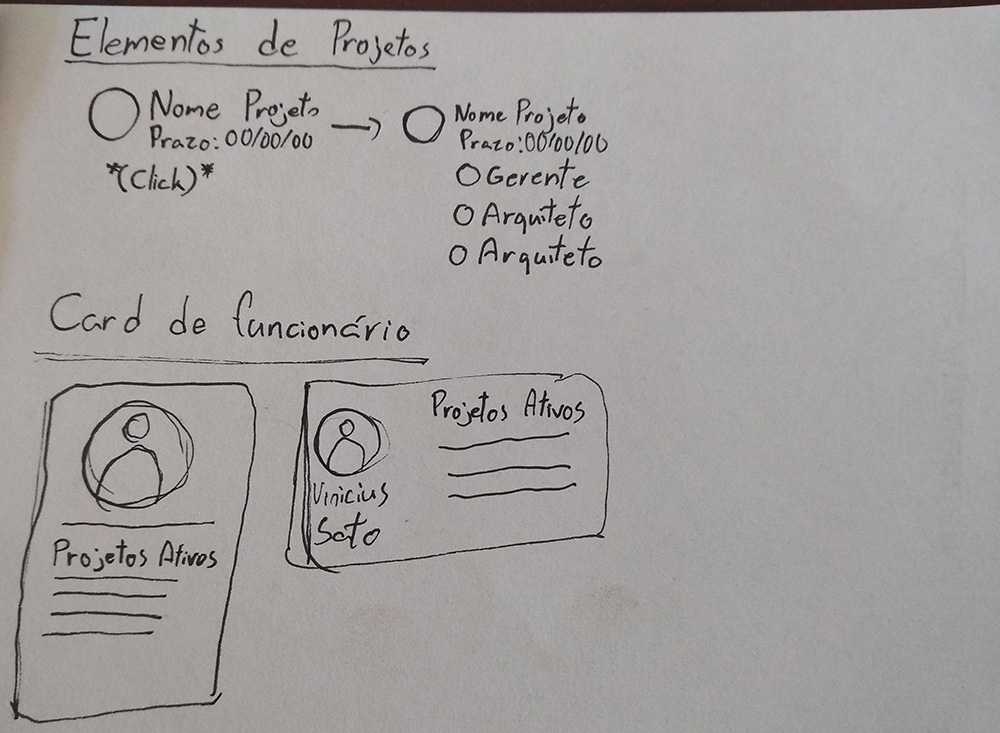 Elementos de Projetos
Nome Projeto
Prazo: 00/00/00
*(Click)*
Nome Projeto
Prazo: 00/00/00
Gerente
Arquiteto
Arquiteto
Card de funcionário
Projetos Ativos
Vinicius
Sato
Projetos Ativos